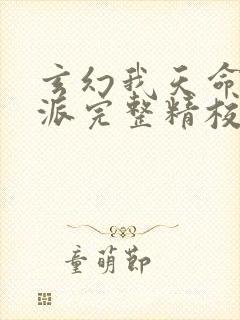 玄幻我天命
派完整精校
童萌節